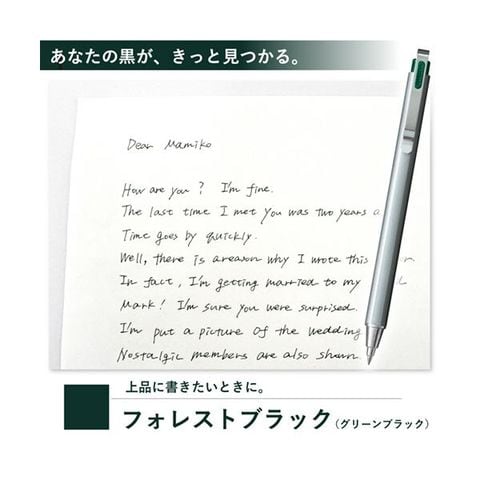 あなたの黒が、きっと見つかる。
Dear Mamiko
How are you? I'm fine.
The last time I met you was two years a
Time goes by quickly.
Well, there is areason why I wrote this
In fact, I'm getting married to my
Mark! I'm sure you were surprised.
I'm put a picture of the wedding
Nostalgic members are also shown.
上品に書きたいときに。
フォレストブラック(グリーンブラック)